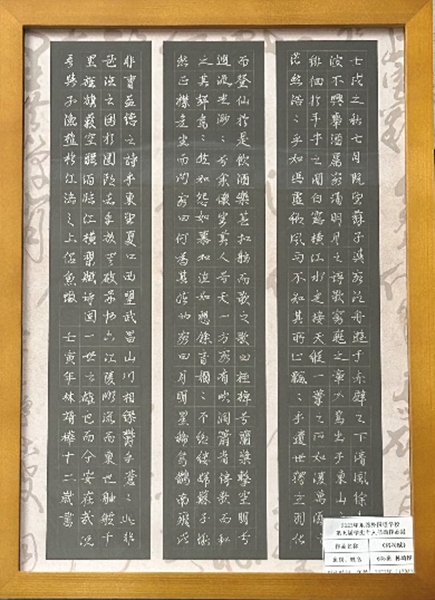 壬戌之秋七月既望蘇子與客泛舟遊于赤壁之下清風徐来
波不興舉酒屬客誦明月之詩歌窈窕之章少焉月出于東山之上
徘徊於斗牛之間白露橫江水光接天縱一葦之所如凌萬頃之
茫然浩々乎如馮虛御風而不知其所止飄々乎如遺世獨立羽化
而登仙於是飲酒樂甚扣舷而歌之歌曰桂棹兮蘭槳擊空明兮
溯流光渺々兮余懷望美人兮天一方客有吹洞簫者倚歌而和
之其聲嗚々然如怨如慕如泣如訴餘音嫋々不絕如縷蘇子愀
然正襟危坐而問客曰何為其然也客曰月明星稀烏鵲南飛此
非曹孟德之詩乎東望夏口西望武昌山川相繆鬱乎蒼々此非
孟德之困於周郎者乎方其破荊州下江陵順流而東也舳艫千
里旌旗蔽空釃酒臨江橫槊賦詩固一世之雄也而今安在哉況
吾與子漁樵於江渚之上侶魚蝦 壬寅年林靖樺十二歲書
作品名称